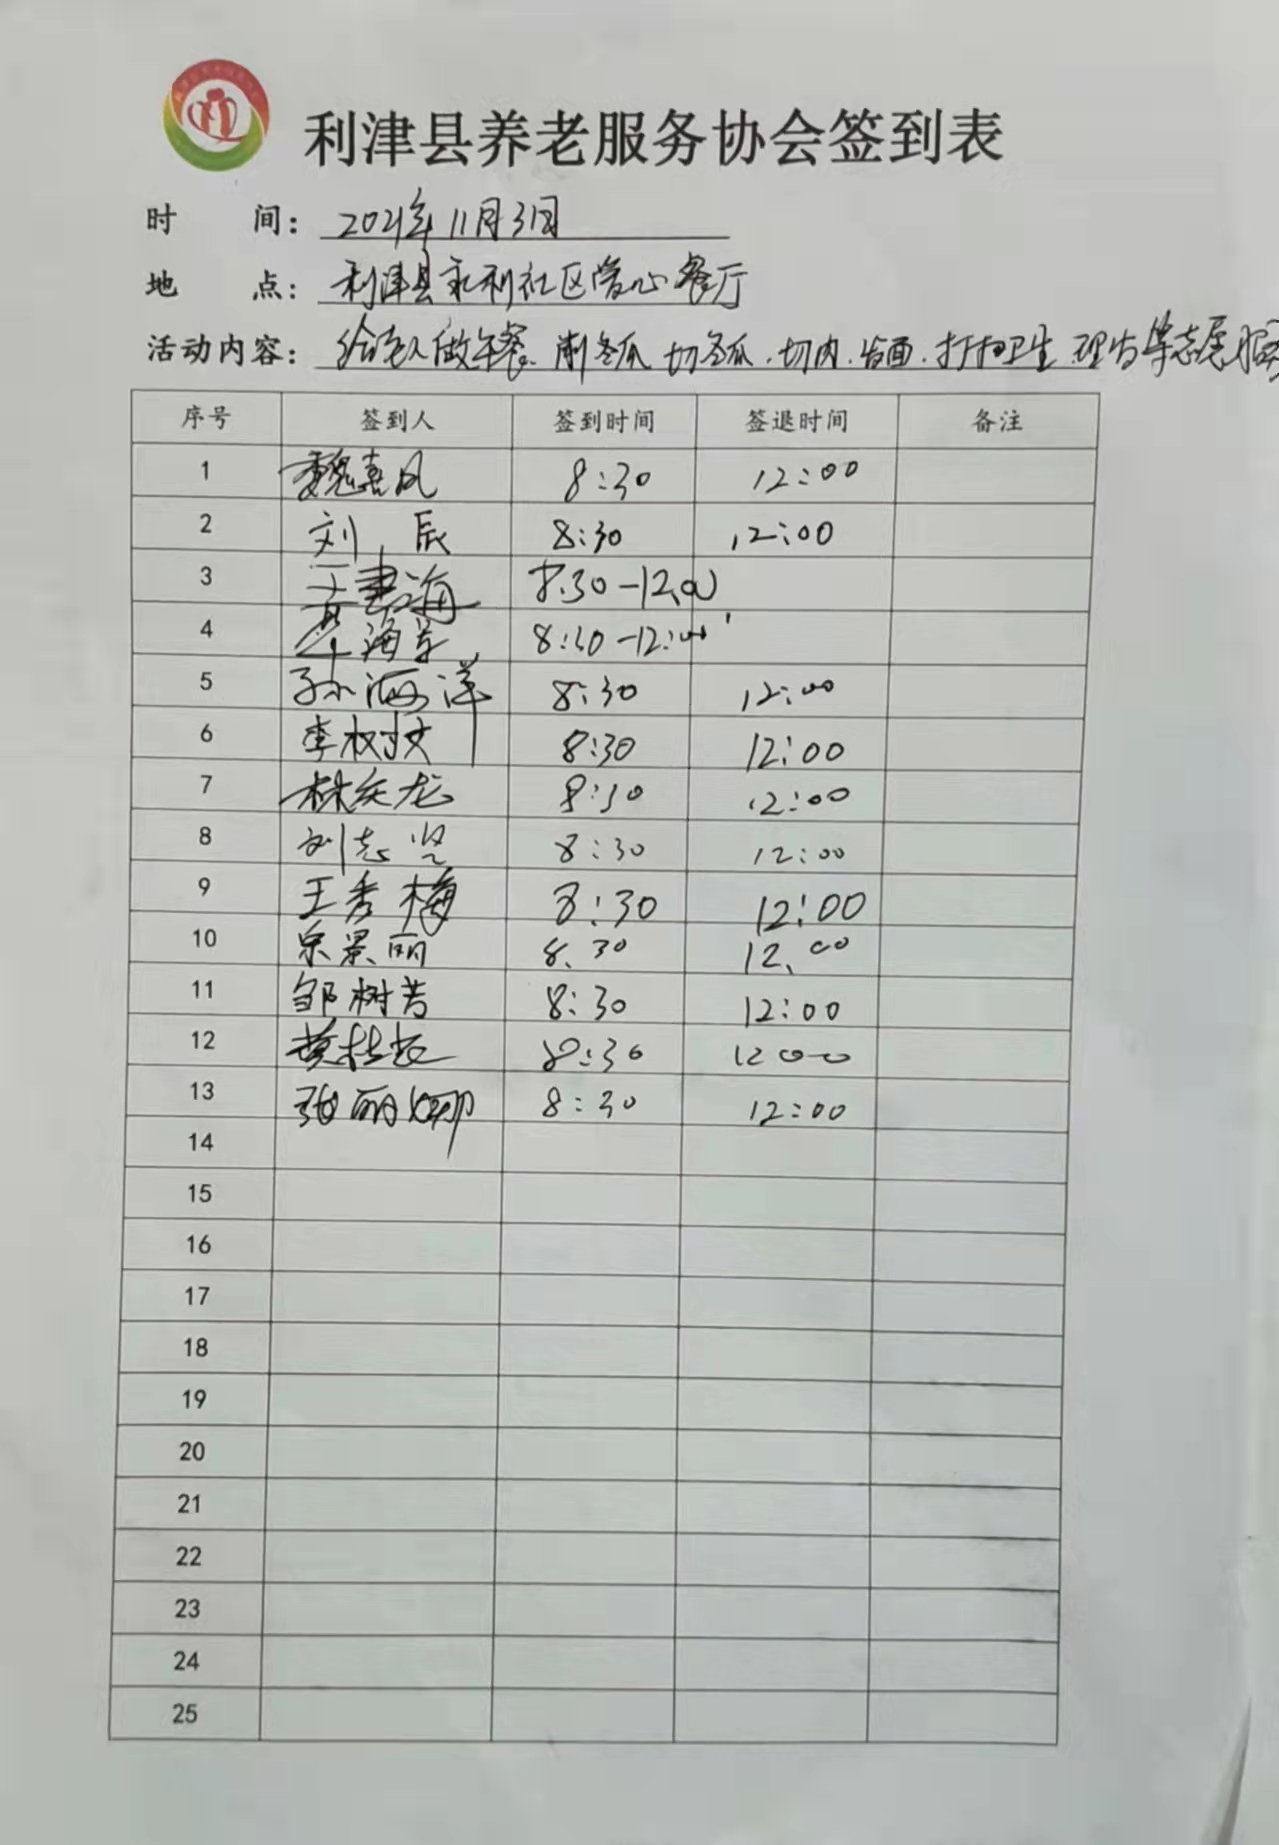 利津县养老服务协会签到表
时 间: 2021年11月3日
地 点: 利津县永利社区爱心餐厅
活动内容: 给老人做午餐、削冬瓜、切冬瓜、切肉、活面、打扫卫生、理发等志愿服务
序号 签到人 签到时间 签退时间 备注
1 魏喜凤 8:30 12:00
2 刘辰 8:30 12:00
3 8:30-12:00
4 8:30-12:00
5 孙海洋 8:30 12:00
6 李树文 8:30 12:00
7 林庆龙 8:30 12:00
8 刘志坚 8:30 12:00
9 王秀梅 8:30 12:00
10 宋景丽 8.30 12.00
11 邹树芳 8:30 12:00
12 8:30 12 00
13 张丽娜 8:30 12:00
14
15
16
17
18
19
20
21
22
23
24
25